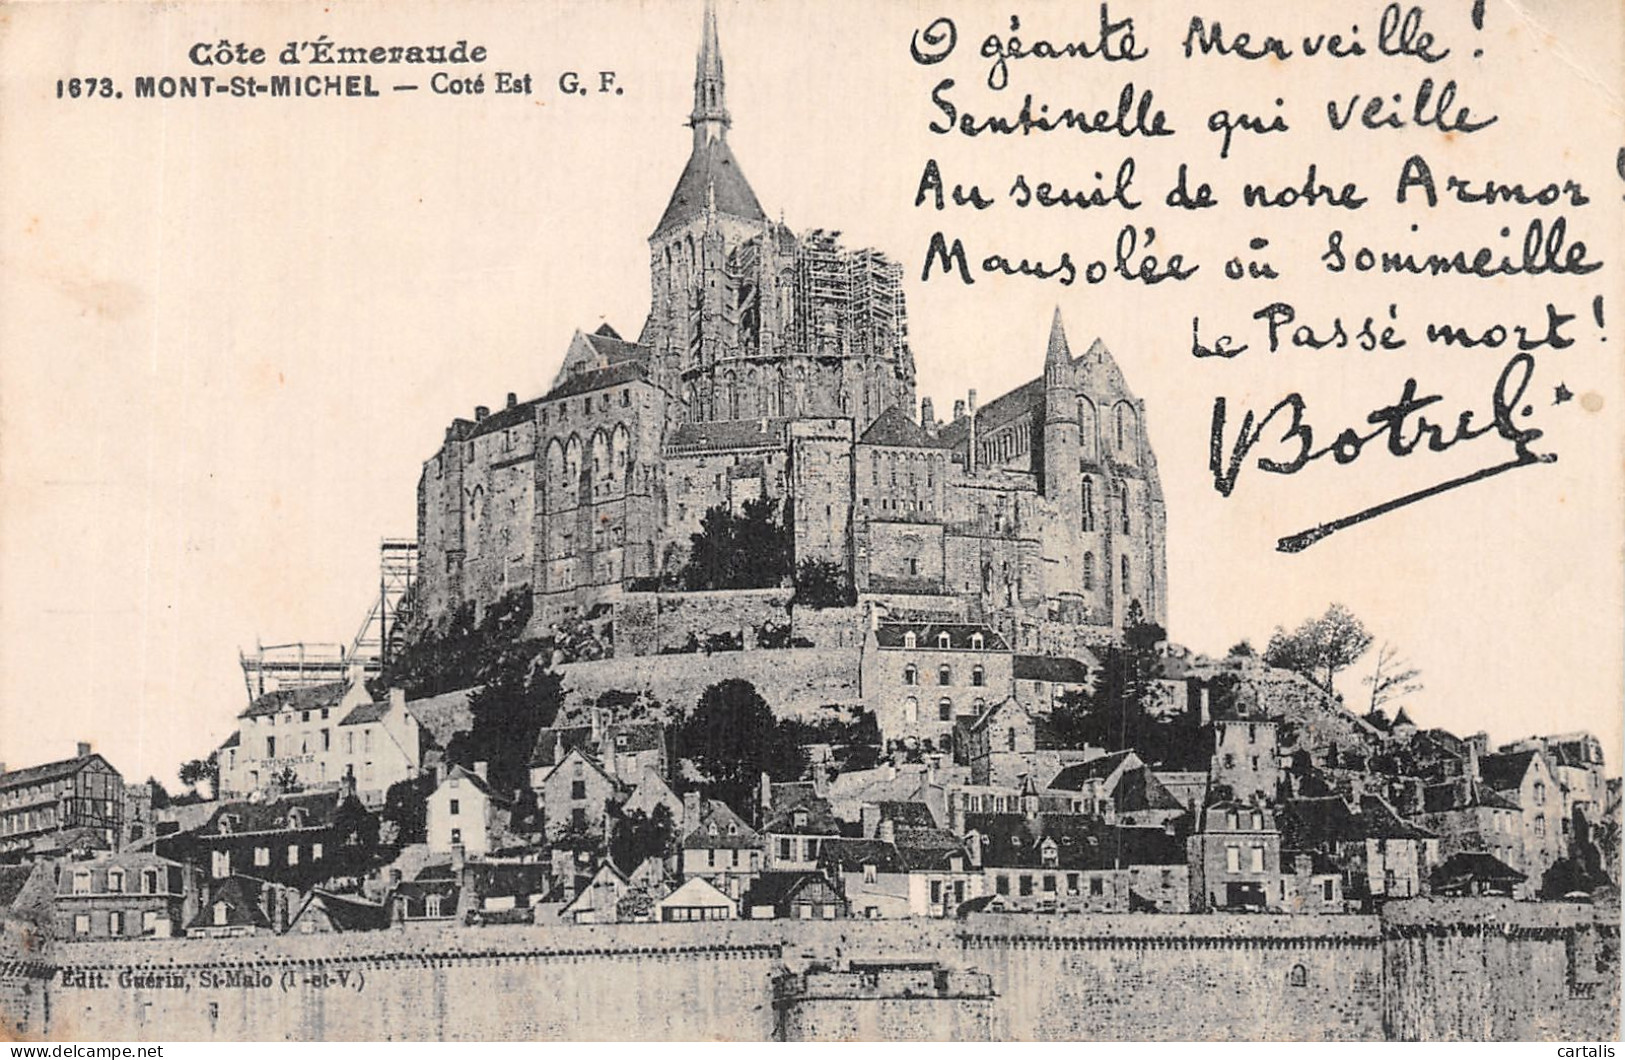 Côte d'Émeraude
1673. MONT-St-MICHEL — Coté Est G. F.
O géante Merveille !
Sentinelle qui veille
Au seuil de notre Armor !
Mausolée où sommeille
Le Passé mort !
Botrel
Edit. Guérin, St-Malo (I-et-V.)
delcampe.net
cartalis